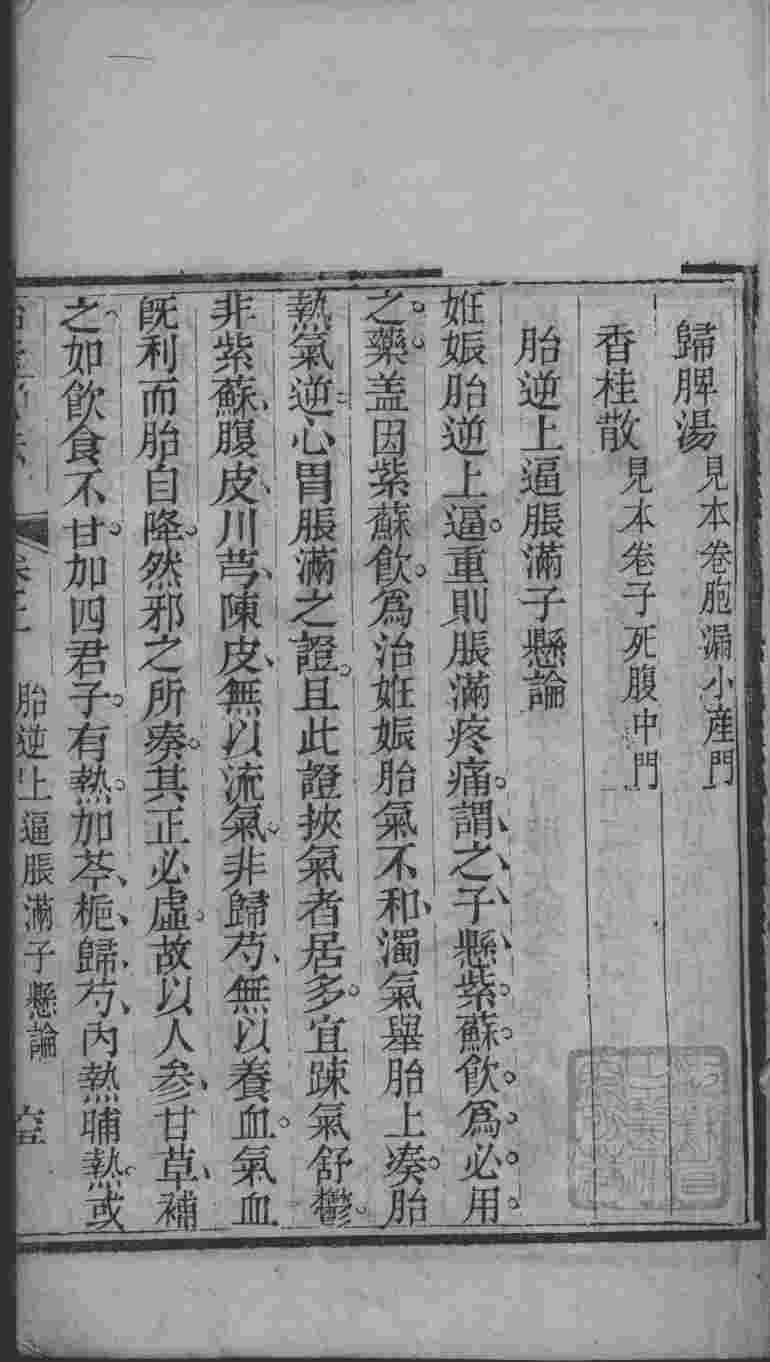 歸脾湯見本卷胞漏小産門
香桂散見本卷子死腹中門
胎逆上逼脹滿子懸論
姙娠胎逆上逼。重則脹滿疼痛。謂之子懸。紫蘇飲爲必用
之藥。盖因紫蘇飲。爲治姙娠胎氣不和、濁氣舉胎上凑。胎
熱氣逆。心胃脹滿之證。且此證挾氣者居多。宜踈氣舒鬱。
非紫蘇、腹皮、川芎、陳皮、無以流氣。非歸芍、無以養血。氣血
旣利而胎自降。然邪之所凑。其正必虛。故以人參、甘草、補
之。如飲食不甘。加四君子。有熱。加芩、梔、歸、芍、內熱晡熱。或
胎逆上逼脹滿子懸論